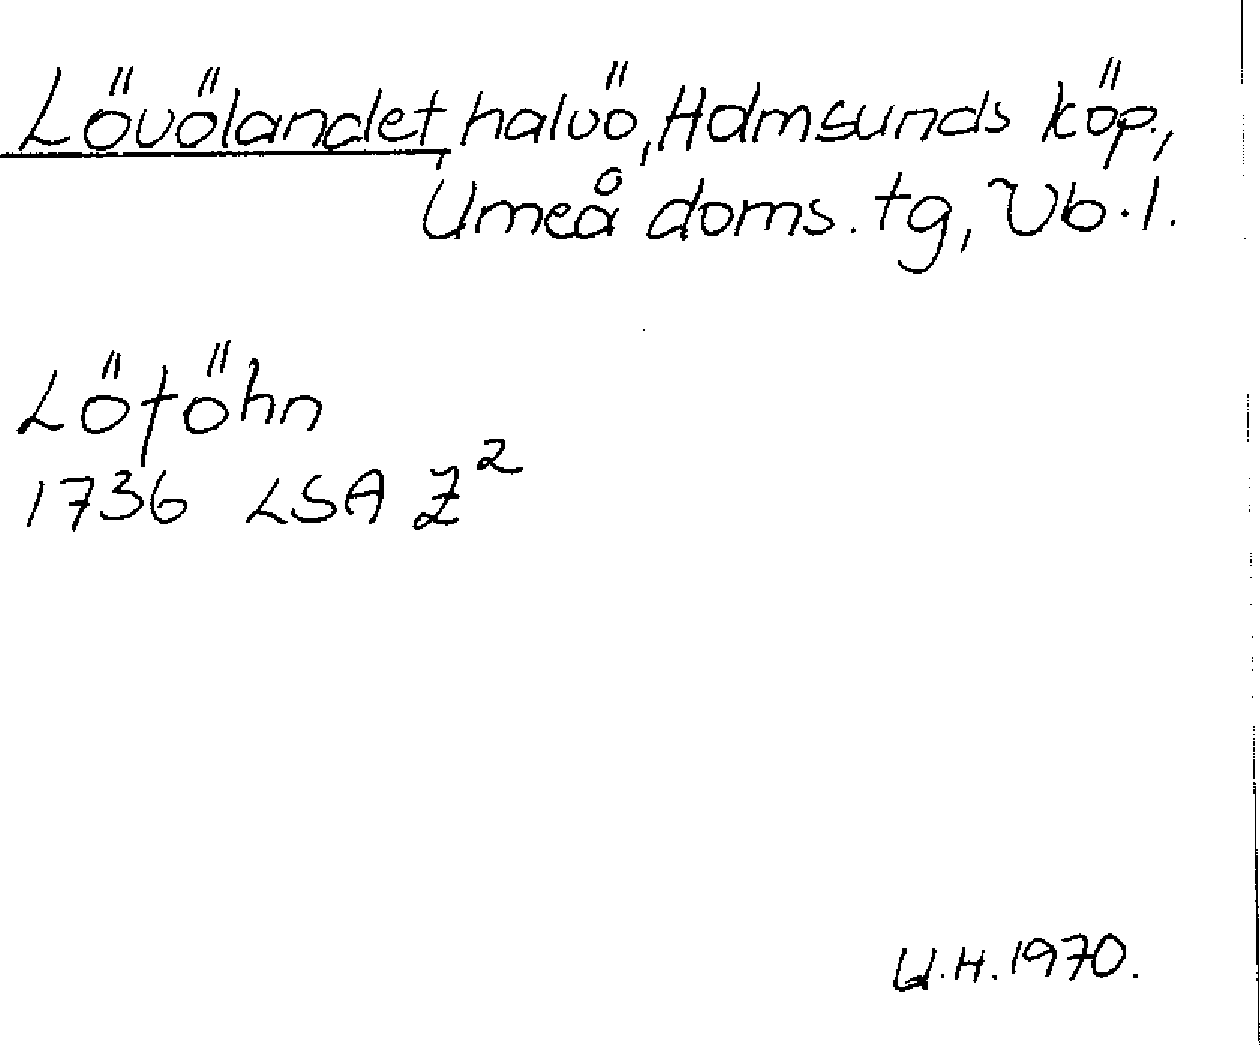 Lövölandet, halvö, Holmsunds köp.,
Umeå doms. tg, Vb. l.
Löföhn
1736 LSA Z²
U.H. 1970.